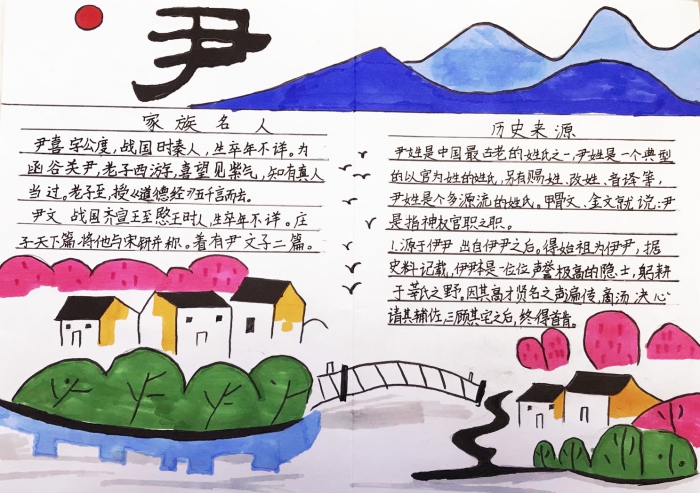 尹
家族名人
尹喜 字公度，战国时秦人，生卒年不详。为
函谷关尹，老子西游，喜望见紫气，知有真人
当过。老子至，授《道德经》五千言而去。
尹文 战国齐宣王至愍王时人，生卒年不详。庄
子天下篇，将他与宋钘并称。著有尹文子二篇。
历史来源
尹姓是中国最古老的姓氏之一，尹姓是一个典型
的以官为姓的姓氏，另有赐姓、改姓、音译等，
尹姓是个多源流的姓氏。甲骨文、金文就说：尹
是指神权官职之职。
1.源于伊尹 出自伊尹之后，得始祖为伊尹，据
史料记载，伊尹本是一位位声誉极高的隐士，躬耕
于莘氏之野，因其高才贤名之声遍传，商汤决心
请其辅佐，三顾其宅之后，终得首肯。